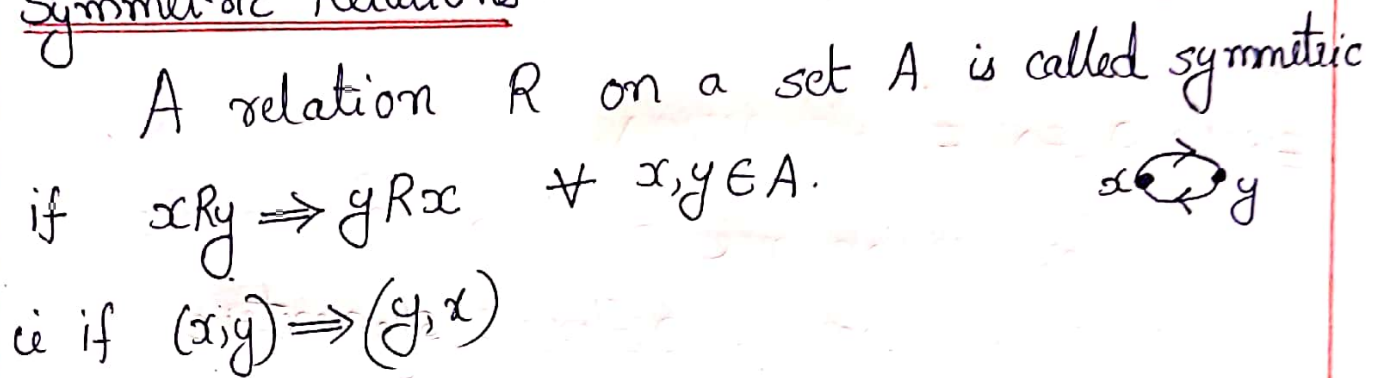 Symmetric Relations
A relation R on a set A is called symmetric
if xRy ⇒ yRx ∀ x,y ∈ A.
x y
ie if (x,y) ⇒ (y,x)